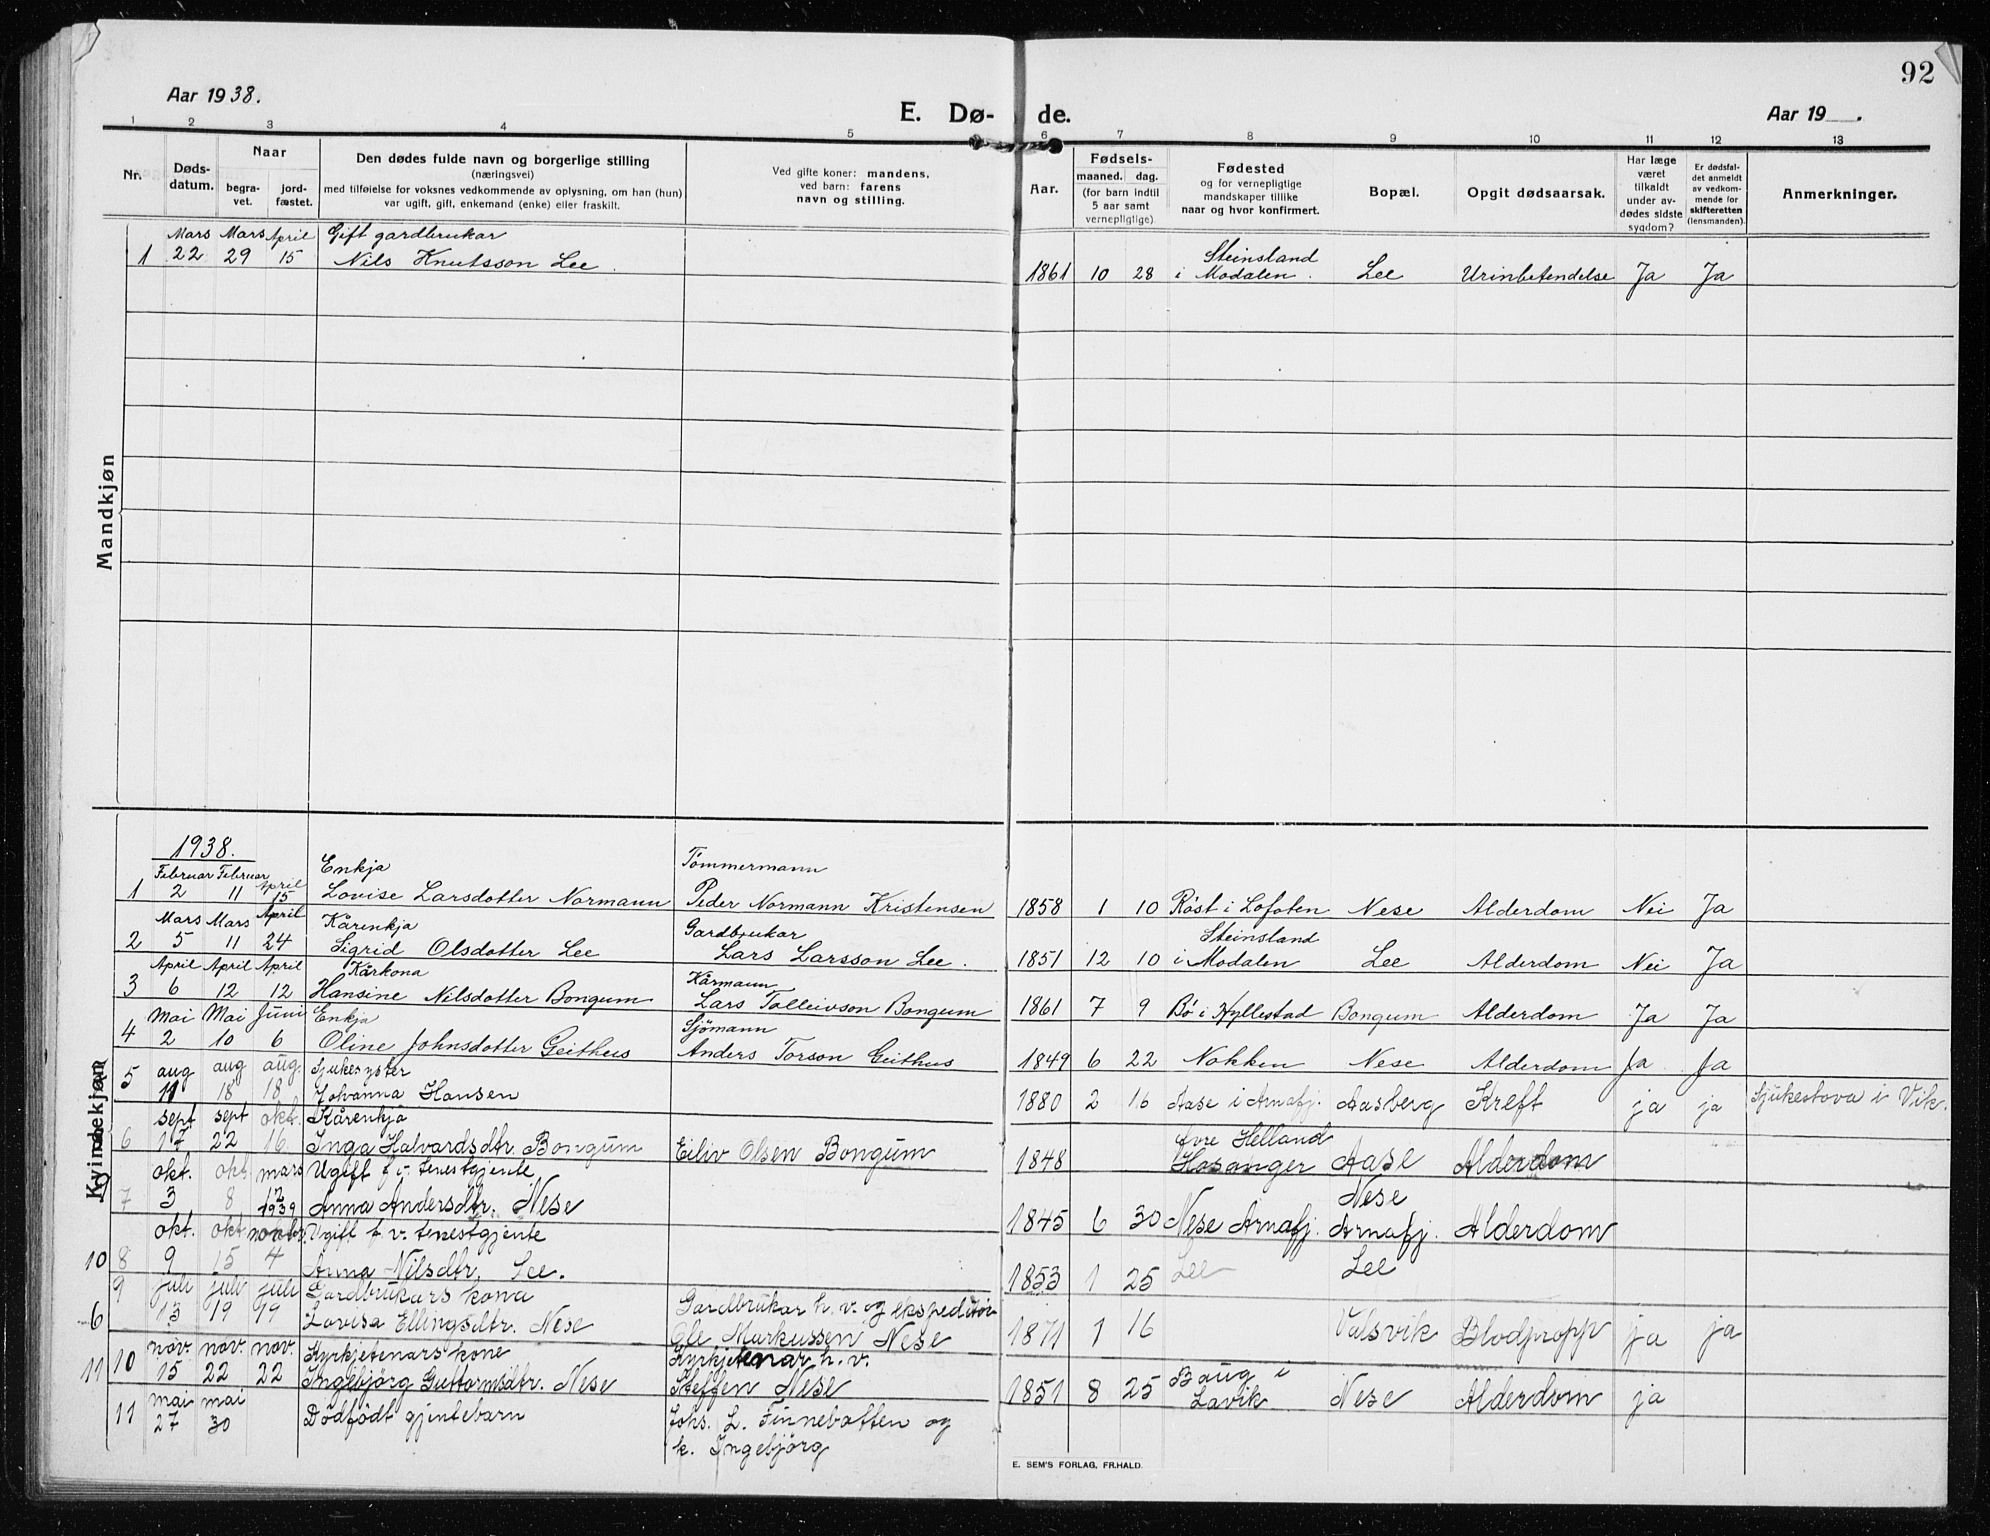 92
Aar 1938.
E. Dø- de.
Aar 19 .
1 2 3 4 5 6 7 8 9 10 11 12 13
Nr.
Døds-
datum.
Naar
begra-
vet.
jord-
fæstet.
Den dødes fulde navn og borgerlige stilling
(næringsvei)
med tilføielse for voksnes vedkommende av oplysning, om han (hun)
var ugift, gift, enkemand (enke) eller fraskilt.
Ved gifte koner: mandens,
ved barn: farens
navn og stilling.
Aar.
Fødsels-
maaned. dag.
(for barn indtil
5 aar samt
vernepligtige).
Fødested
og for vernepligtige
mandskaper tillike
naar og hvor konfirmert.
Bopæl.
Opgit dødsaarsak.
Har læge
været
tilkaldt
under av-
dødes sidste
sygdom?
Er dødsfal-
det anmeldt
av vedkom-
mende for
skifteretten
(lensmanden).
Anmerkninger.
Mandkjøn
Mars Mars April Gift gardbrukar Steinsland
1 22 29 15 Nils Knutsson Lee. 1861 10 28 i Modalen. Lee Urinbetendelse Ja Ja
Kvindekjøn
1938.
Februar Februar April Enkja Tömmermann
1 2 11 15 Lovise Larsdotter Normann Peder Normann Kristensen 1858 1 10 Röst i Lofoten Nese Alderdom Nei Ja
Mars Mars April Kårenkja Gardbrukar Steinsland
2 5 11 24 Sigrid Olsdotter Lee Lars Larsson Lee. 1851 12 10 i Modalen Lee Alderdom Nei Ja
April April April Kårkona Kårmann
3 6 12 12 Hansine Nilsdotter Bongum Lars Tolleivson Bongum 1861 7 9 Bö i Hyllestad Bongum Alderdom Ja Ja
Mai Mai Juni Enkja Sjömann
4 2 10 6 Oline Johnsdotter Geithus Anders Torson Geithus 1849 6 22 Nokken Nese Alderdom Ja Ja
5 aug aug aug. Sjukesyster
11 18 18 Johanna Hansen 1880 2 16 Aase i Arnafj. Aasberg Kreft ja ja Sjukestova i Vik.
sept sept okt. Kårenkja Øvre Helland
6 17 22 16 Inga Halvardsdtr. Bongum Eiliv Olsen Bongum 1848 Hosanger Aase Alderdom
okt. okt mars Ugift f. v. tenestgjente Nese
7 3 8 12 1939 Anna Andersdtr. Nese 1845 6 30 Nese Arnafj. Arnafj. Alderdom
okt. okt novbr. Ugift f. v. tenestgjente
10 8 9 15 4 Anna Nilsdtr. Lee. 1853 1 25 Lee Lee
9 juli juli juli Gardbrukars kona Gardbrukar h. v. og ekspeditör
6 13 19 19 Lovisa Ellingsdtr. Nese Ole Markussen Nese 1871 1 16 Valsvik Blodpropp ja ja
nov. nov. nov. Kyrkjetenars kone Kyrkjetenar h. v. Baug i
11 10 15 22 22 Ingebjörg Guttormsdtr. Nese Steffen Nese 1851 8 25 Lavik Nese Alderdom ja
mai mai
11 27 30 Dödfödt gjentebarn Johs. L. Finnebotten og
k. Ingebjörg
E. SEM'S FORLAG, FR.HALD.